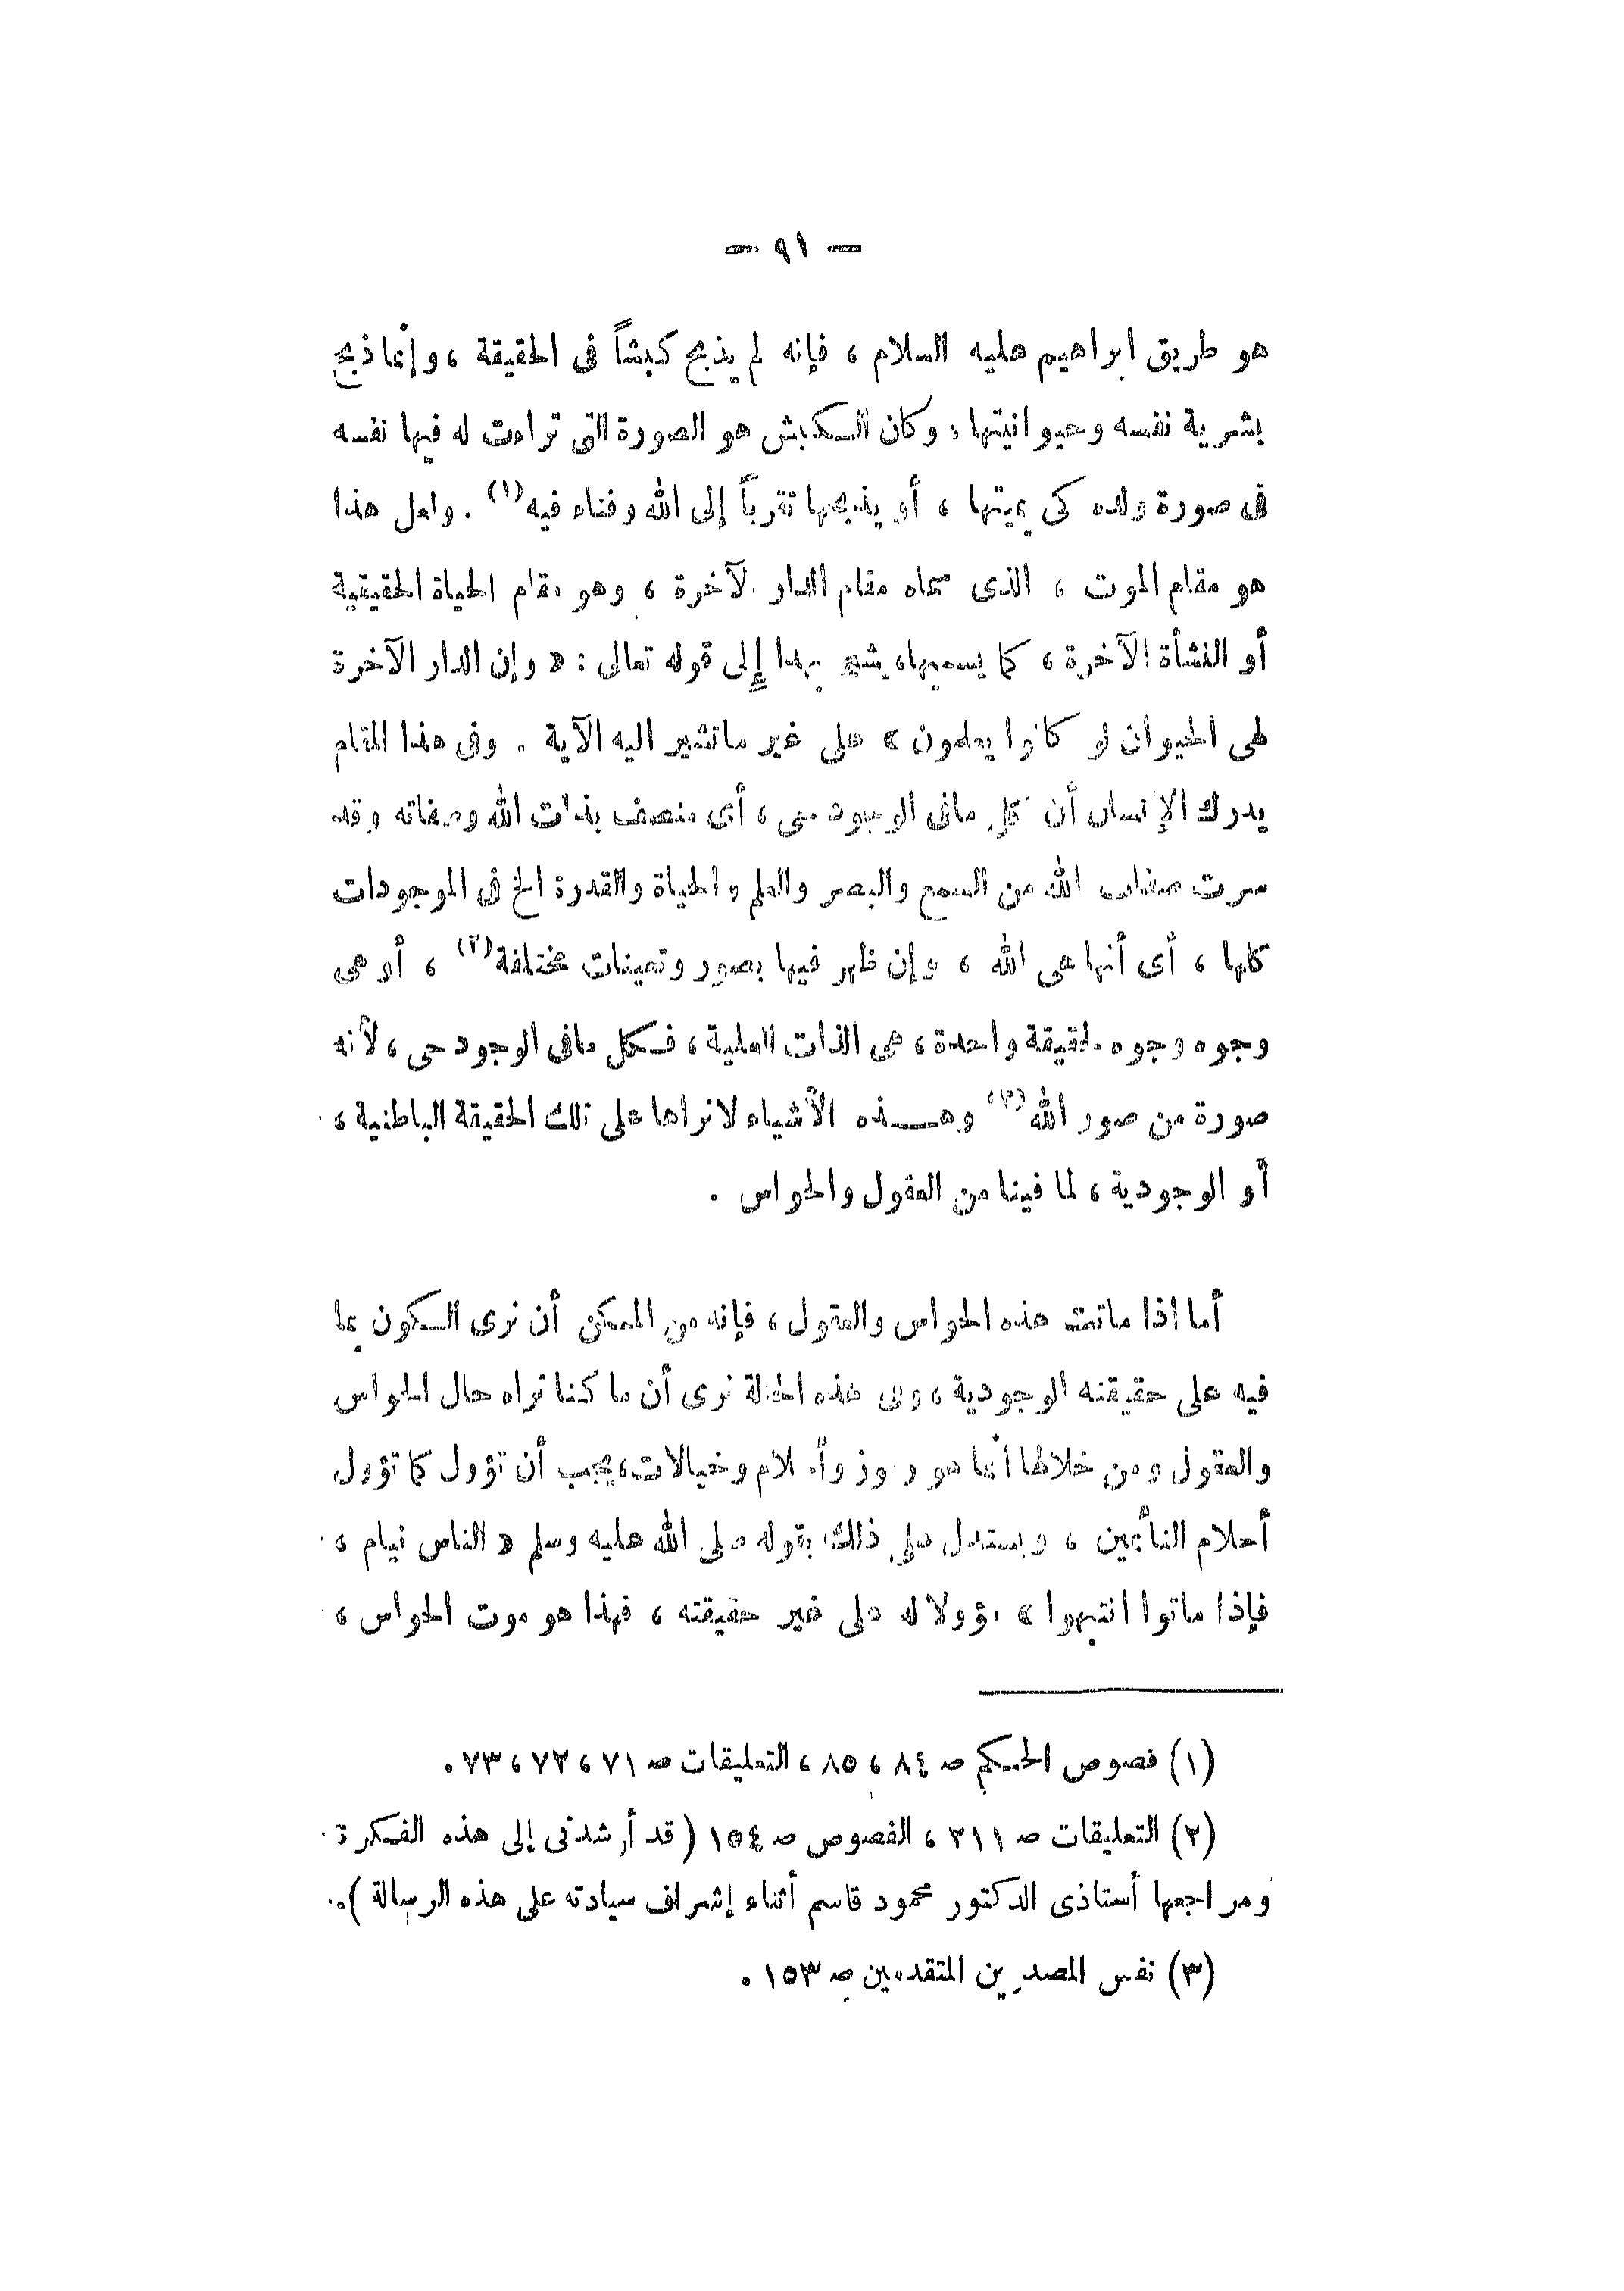 — ٩١ —
هو طريق ابراهيم عليه السلام ، فإنه لم يذبح كبشاً فى الحقيقة ، وإنما ذبح
بشرية نفسه وحيوانيتها ، وكان الكبش هو الصورة التى تراءت له فيها نفسه
فى صورة ولده كى يميتها ، أو يذبحها تقرباً إلى الله وفناء فيه (١) . ولعل هذا
هو مقام الموت ، الذى سماه مقام الدار الآخرة ، وهو مقام الحياة الحقيقية
أو النشأة الآخرة ، كما يسميها، يشير بهذا إلى قوله تعالى : « وإن الدار الآخرة
لهى الحيوان لو كانوا يعلمون » على غير ماتشير اليه الآية . وفى هذا المقام
يدرك الإنسان أن كل مافى الوجود حى ، أى متصف بذات الله وصفاته وقد
سرت صفات الله من السمع والبصر والعلم والحياة والقدرة الخ فى الموجودات
كلها ، أى أنها هى الله ، وإن ظهر فيها بصور وتعينات مختلفة (٢) ، أو هى
وجوه وجوه لحقيقة واحدة ، هى الذات العلية ، فكل مافى الوجود حى ، لأنه
صورة من صور الله (٣) وهـــذه الأشياء لا نراها على تلك الحقيقة الباطنية ،
أو الوجودية ، لما فينا من العقول والحواس .
أما اذا ماتت هذه الحواس والعقول ، فإنه من الممكن أن نرى الكون بما
فيه على حقيقته الوجودية ، وفى هذه الحالة نرى أن ما كنا نراه حال الحواس
والعقول ومن خلالها أنما هو رموز وأحلام وخيالات، يجب أن تؤول كما تؤول
أحلام النائمين ، ويستدل على ذلك بقوله صلى الله عليه وسلم « الناس نيام ،
فإذا ماتوا انتبهوا » مؤولا له على غير حقيقته ، فهذا هو موت الحواس ،
(١) فصوص الحكم صـ ٨٤ ، ٨٥ ، التعليقات صـ ٧١ ، ٧٢ ، ٧٣ .
(٢) التعليقات صـ ٣١١ ، الفصوص صـ ١٥٤ ( قد أرشدنى إلى هذه الفكرة
ومراجعها أستاذى الدكتور محمود قاسم أثناء إشراف سيادته على هذه الرسالة ).
(٣) نفس المصدرين المتقدمين صـ ١٥٣ .